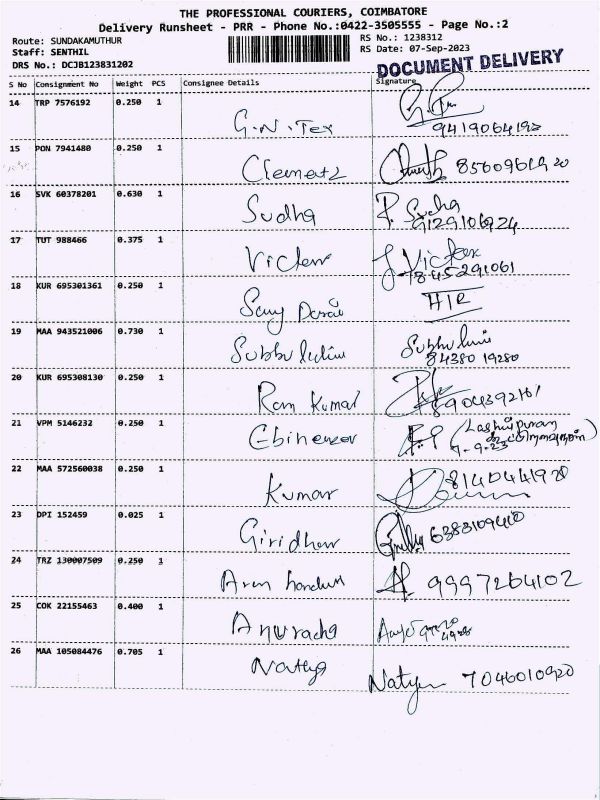 THE PROFESSIONAL COURIERS, COIMBATORE
Delivery Runsheet - PRR - Phone No.:0422-3505555 - Page No.:2
Route: SUNDAKAMUTHUR
Staff: SENTHIL
DRS No.: DCJB123831202
RS No.: 1238312
RS Date: 07-Sep-2023
DOCUMENT DELIVERY
S No Consignment No Weight PCS Consignee Details Signature
14 TRP 7576192 0.250 1
G.N.Tex
9419064193
15 PON 7941480 0.250 1
Clementz
16 SVK 60378201 0.630 1
Sudha P. Sudha
9129106924
17 TUT 988466 0.375 1
Victor J Victor
18 KUR 695301361 0.250 1
HIR
19 MAA 943521006 0.730 1
84380 19280
20 KUR 695308130 0.250 1
Ram Kumar
21 VPM 5146232 0.250 1
Ebinezer
7-9-23
22 MAA 572560038 0.250 1
Kumar 8140441920
23 DPI 152459 0.025 1
Giridhar 6383109410
24 TRZ 130007509 0.250 1
9997264102
25 COK 22155463 0.400 1
Anuradha
26 MAA 105084476 0.705 1
Nathya 7046010920